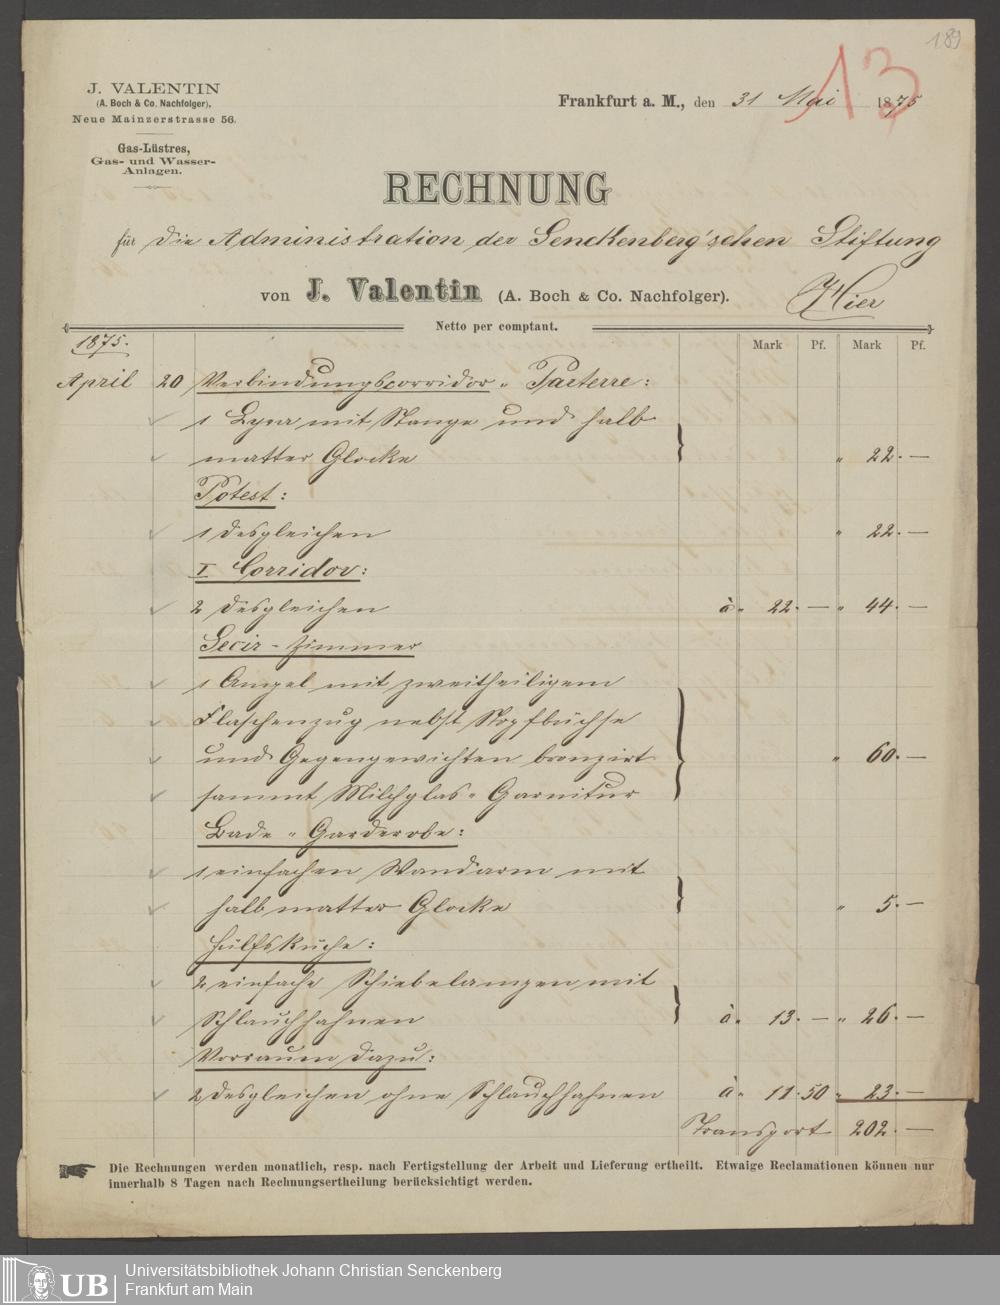 189
13
J. VALENTIN
(A. Boch & Co. Nachfolger),
Neue Mainzerstrasse 56.
Gas-Lüstres,
Gas- und Wasser-
Anlagen.
Frankfurt a. M., den 31 Mai 1875
RECHNUNG
für die Administration der Senckenberg'schen Stiftung
von J. Valentin (A. Boch & Co. Nachfolger). Hier
Netto per comptant.
1875. Mark Pf. Mark Pf.
April 20 Verbindungscorridor " Parterre:
1 Lyra mit Stange und halb
matter Glocke } " 22. —
Potest:
1 desgleichen " 22. —
I Corridor:
2 desgleichen à " 22. — " 44. —
Secir-Zimmer
1 Ampel mit zweitheiligem
Flaschenzug nebst Stopfbüchse
und Gegengewichten bronzirt } " 60. —
sammt Milchglas-Garnitur
Bade " Garderobe:
1 einfachen Wandarm mit
halb matter Glocke } " 5. —
Hülfsküche:
2 einfache Schiebelampen mit
Schlauchhahnen } à " 13. — " 26. —
Vorraum dazu:
2 desgleichen ohne Schlauchhahnen à " 11. 50 " 23. —
Transport 202. —
Die Rechnungen werden monatlich, resp. nach Fertigstellung der Arbeit und Lieferung ertheilt. Etwaige Reclamationen können nur
innerhalb 8 Tagen nach Rechnungsertheilung berücksichtigt werden.
UB
Universitätsbibliothek Johann Christian Senckenberg
Frankfurt am Main